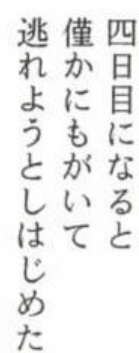 四日目になると
僅かにもがいて
逃れようとしはじめた